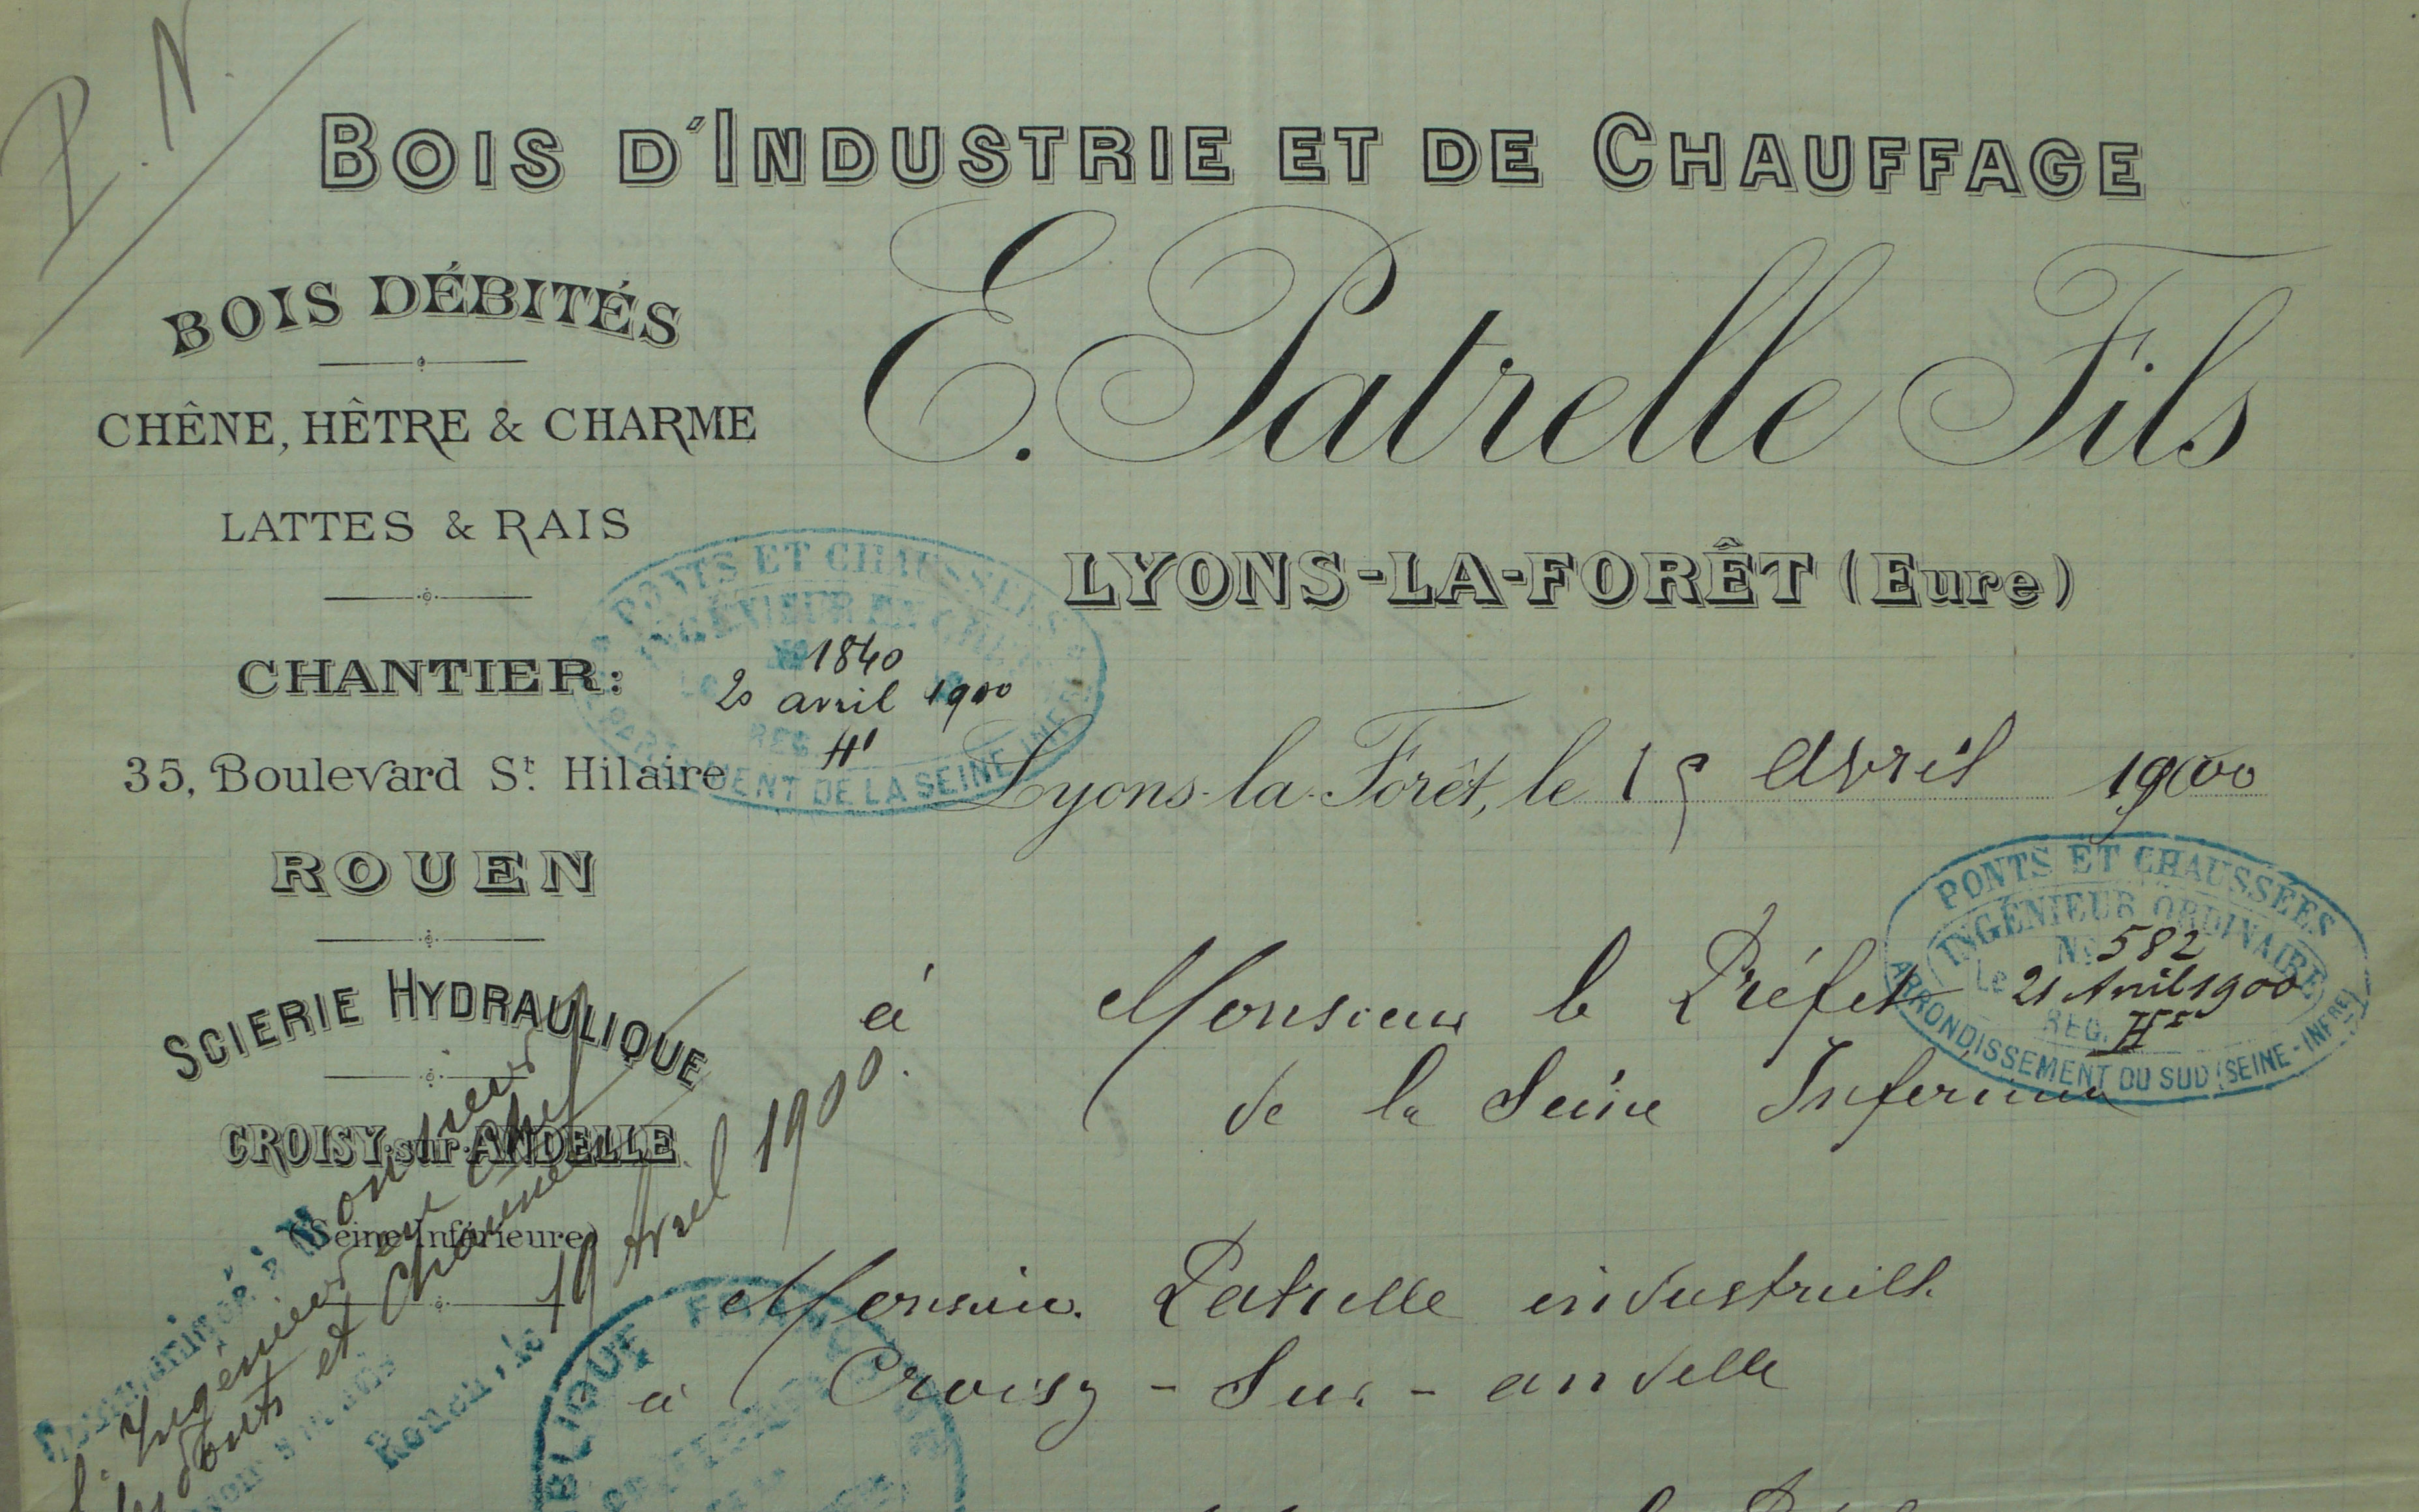 P. N.
BOIS D'INDUSTRIE ET DE CHAUFFAGE
BOIS DÉBITÉS
CHÊNE, HÊTRE & CHARME
LATTES & RAIS
CHANTIER:
35, Boulevard St. Hilaire
ROUEN
SCIERIE HYDRAULIQUE
CROISY-sur-ANDELLE
(Seine-Inférieure)
E. Patrelle Fils
LYONS-LA-FORÊT (Eure)
PONTS ET CHAUSSÉES
INGÉNIEUR EN CHEF
No 1840
Le 20 avril 1900
REG. H'
DÉPARTEMENT DE LA SEINE INFRE
Lyons-la-Forêt, le 15 avril 1900
PONTS ET CHAUSSÉES
INGÉNIEUR ORDINAIRE
No 582
Le 21 Avril 1900
REG. H
ARRONDISSEMENT DU SUD (SEINE-INFRE)
à Monsieur le Préfet
de la Seine Inferieure
Communiqué à Monsieur
l'Ingénieur en Chef
des Ponts et Chaussées
pour avis
Rouen, le 19 Avril 1900.
Monsieur Patrelle industriel
à Croisy - Sur - andelle
RÉPUBLIQUE FRANÇAISE